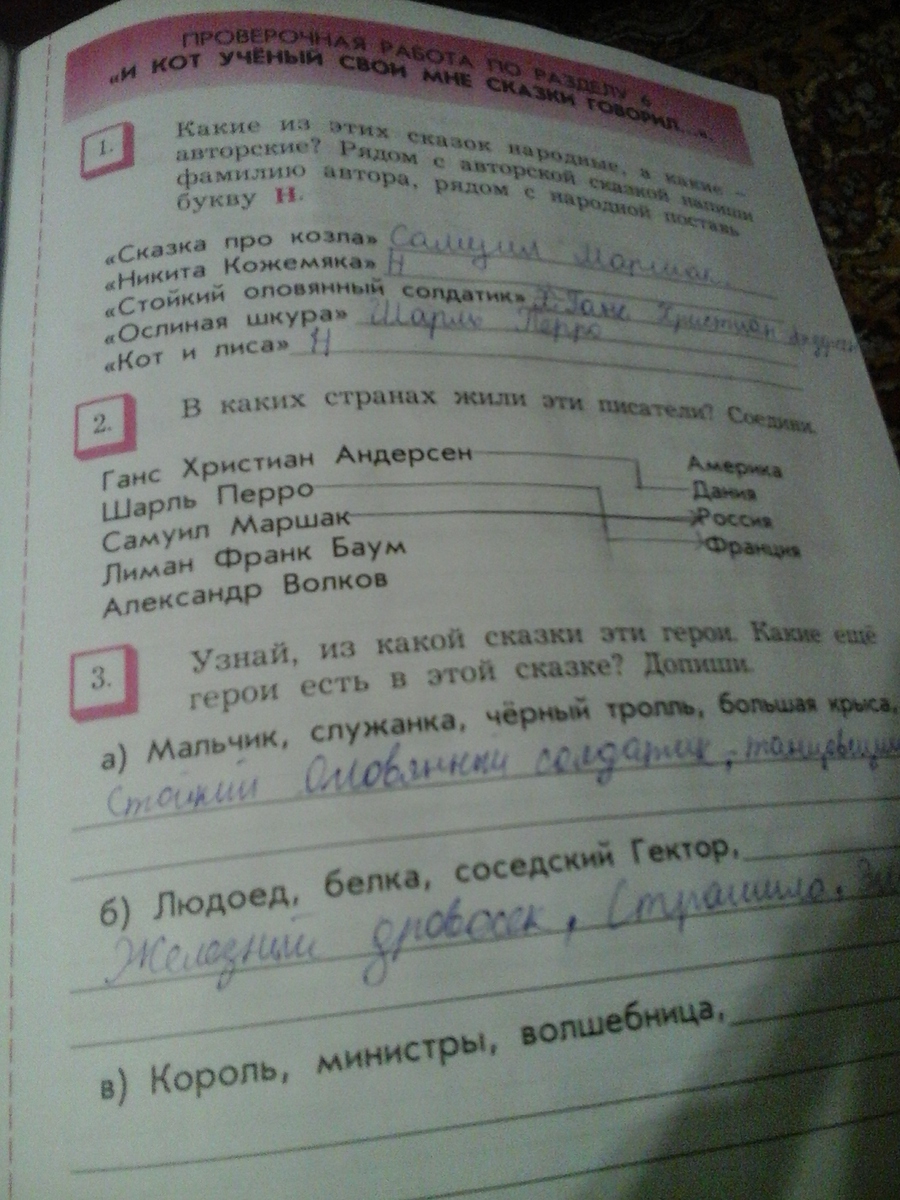 ПРОВЕРОЧНАЯ РАБОТА ПО РАЗДЕЛУ 6
«И КОТ УЧЁНЫЙ СВОИ МНЕ СКАЗКИ ГОВОРИЛ...».
1. Какие из этих сказок народные, а какие –
авторские? Рядом с авторской сказкой напиши
фамилию автора, рядом с народной поставь
букву Н.
«Сказка про козла» Самуил Маршак.
«Никита Кожемяка» Н
«Стойкий оловянный солдатик» Ганс Христиан
«Ослиная шкура» Шарль Перро
«Кот и лиса» Н
2. В каких странах жили эти писатели? Соедини.
Ганс Христиан Андерсен Америка
Шарль Перро Дания
Самуил Маршак Россия
Лиман Франк Баум Франция
Александр Волков
3. Узнай, из какой сказки эти герои. Какие ещё
герои есть в этой сказке? Допиши.
а) Мальчик, служанка, чёрный тролль, большая крыса,
Стойкий Оловянный солдатик,
б) Людоед, белка, соседский Гектор,
Железный дровосек, Страшила,
в) Король, министры, волшебница,